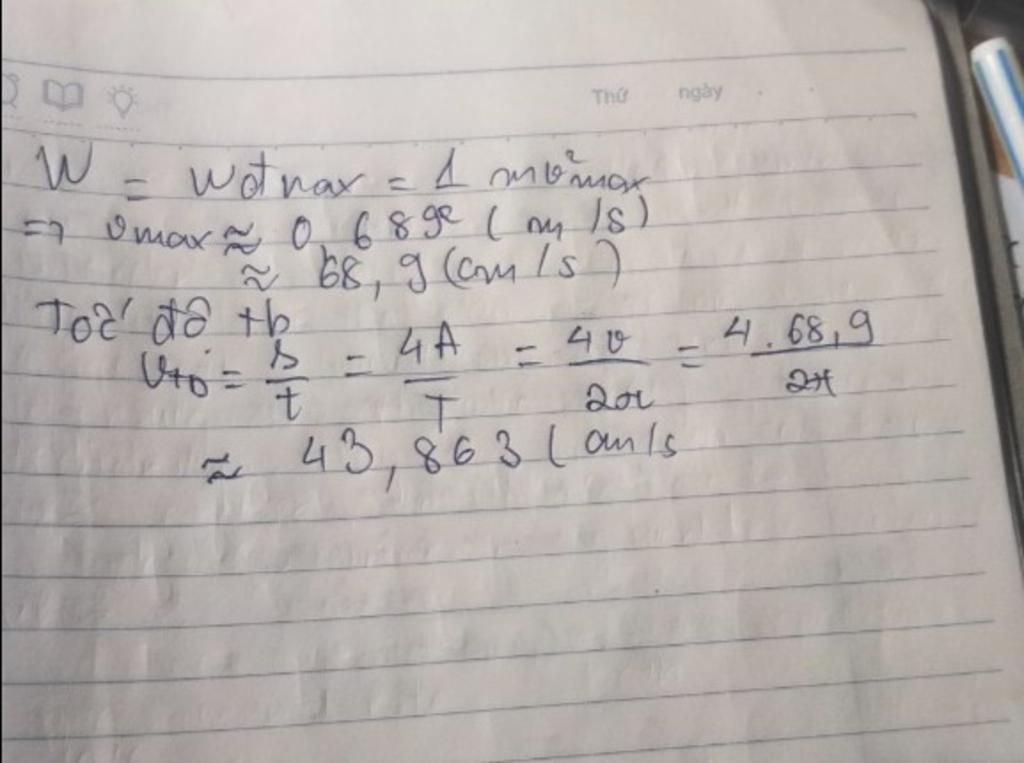 Thứ ngày
W = Wđmax = 1 mv²max
=> vmax ≈ 0,689 (m/s)
≈ 68,9 (cm/s)
Tốc độ tb
vtb = s/t = 4A/T = 4v/2π = 4.68,9/2π
≈ 43,863 (cm/s